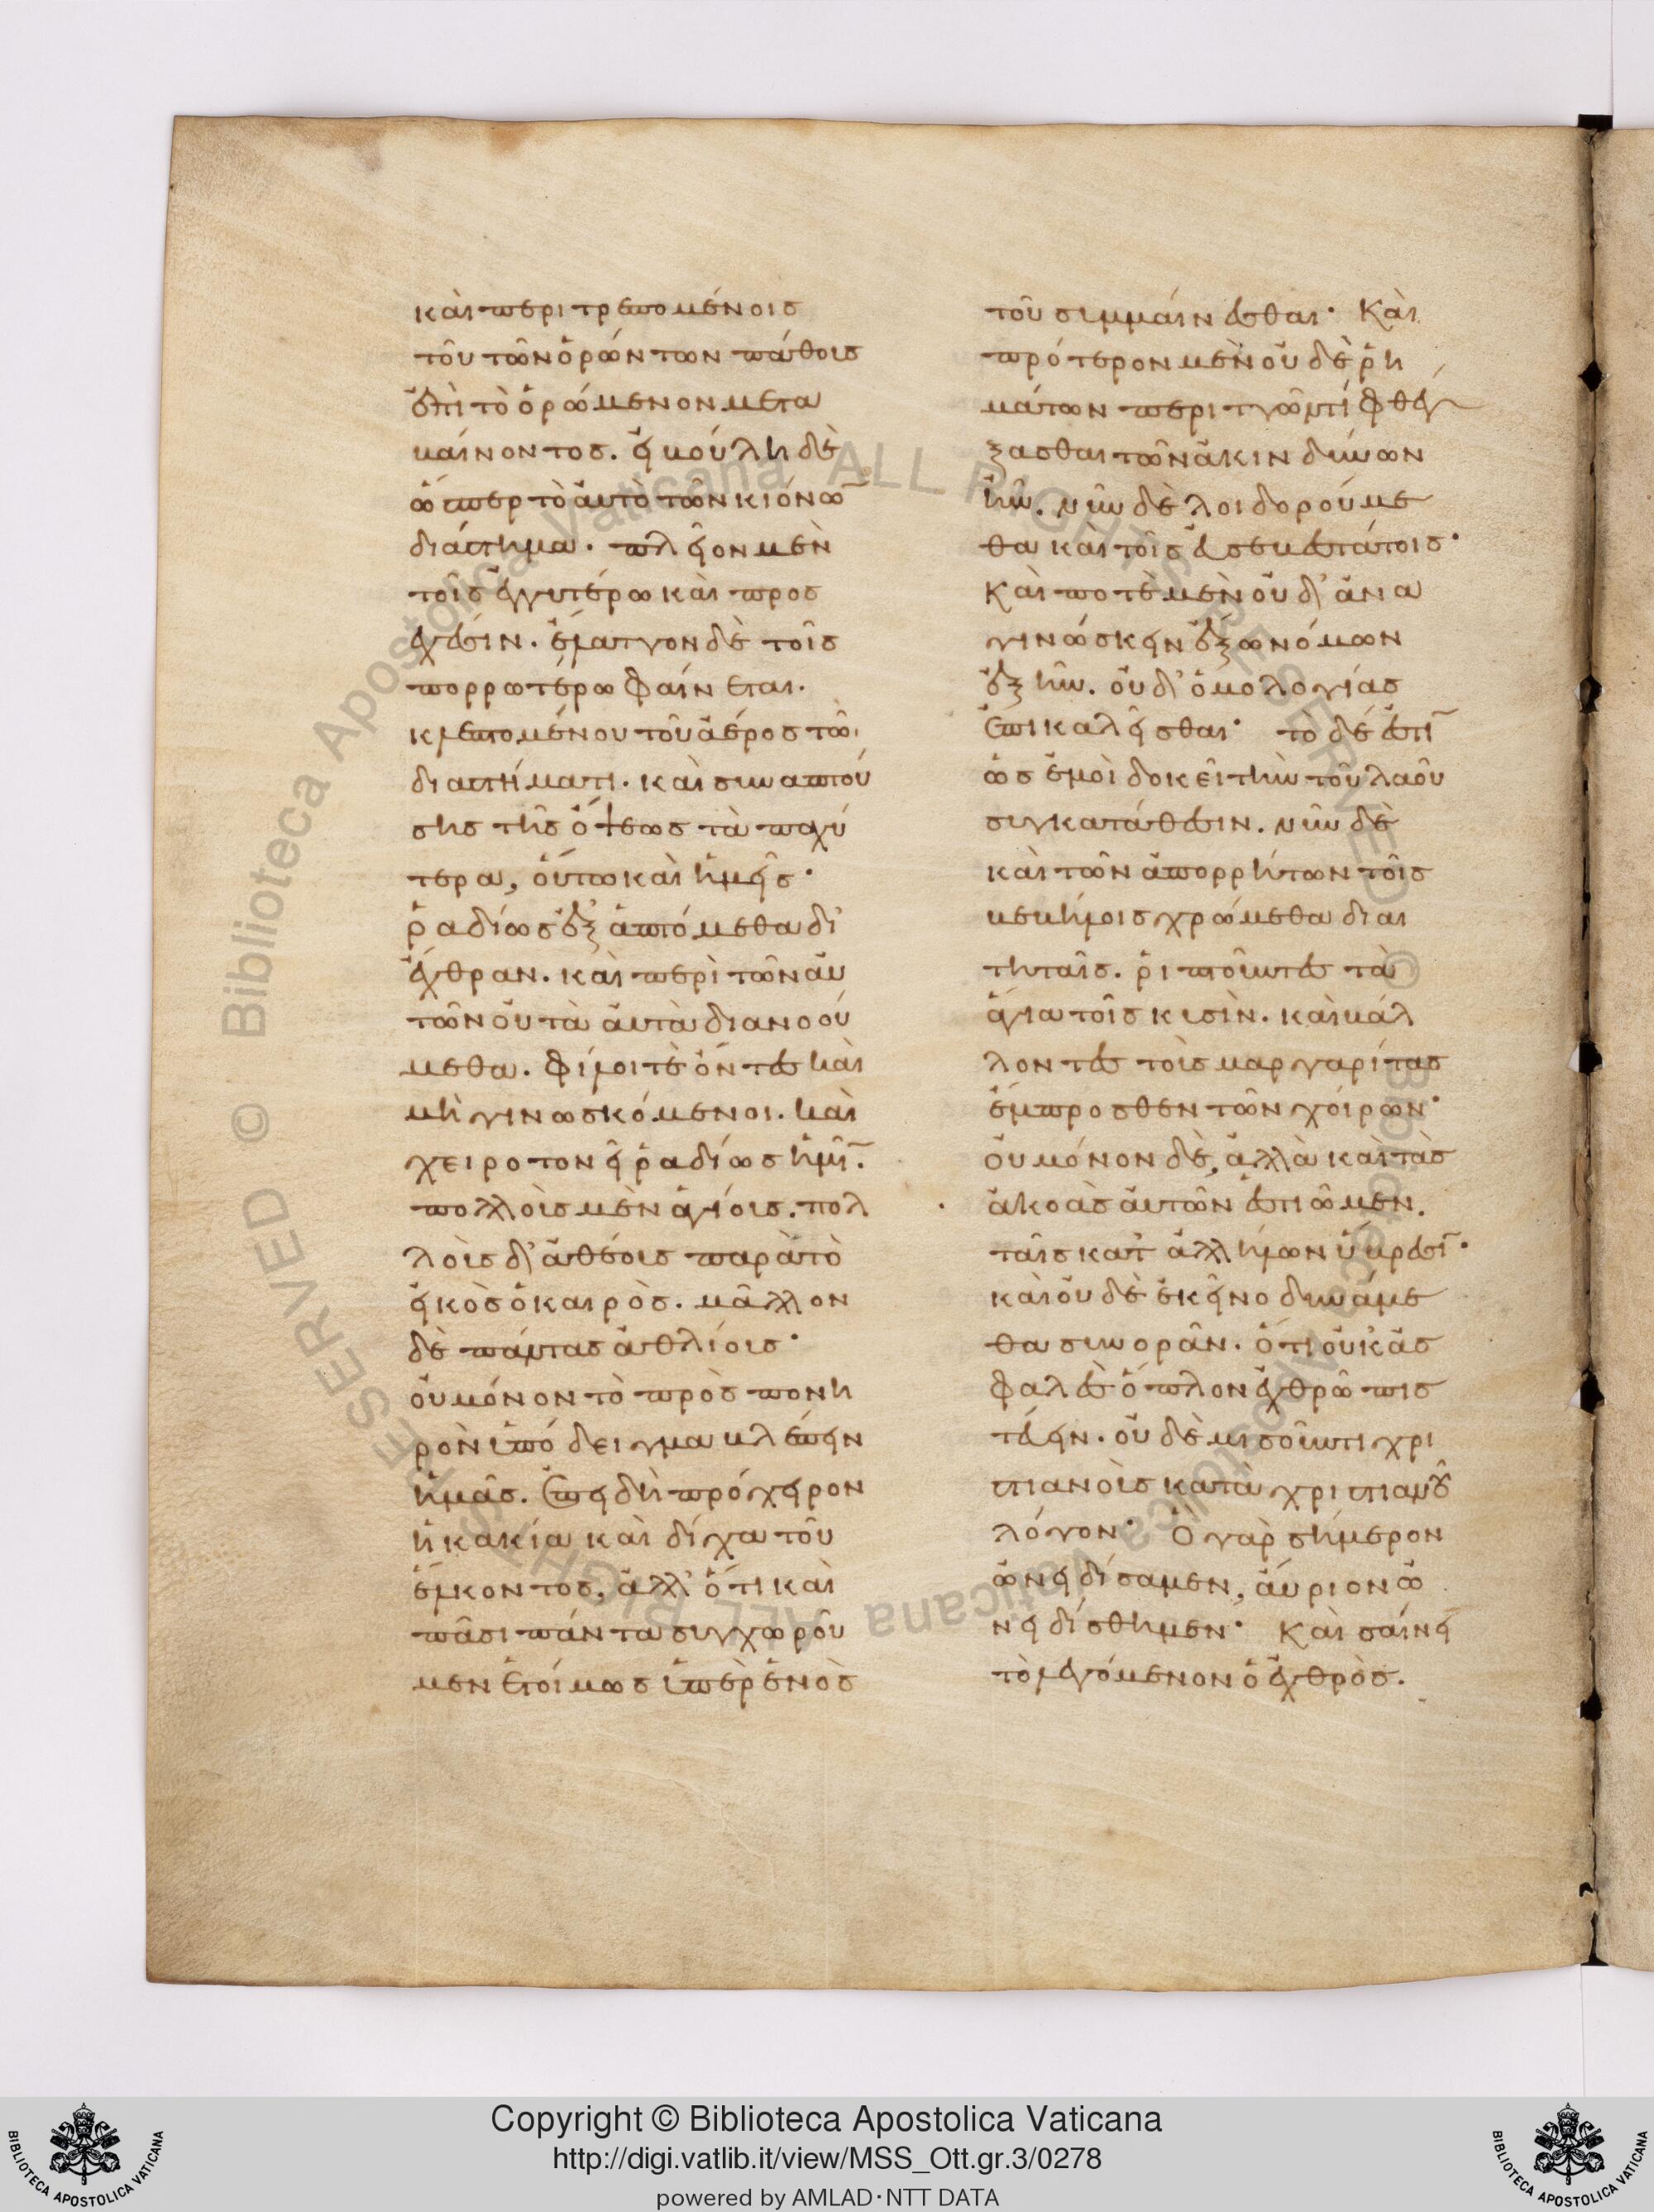 καὶ περιτρεπομένοις
τοῦ τῶν ὁρώντων πάθους
ἐπὶ τὸ ὁρώμενον μετα
βαίνοντος. εἰ βούλει δὲ
ὥσπερ τὸ αὐτὸ τῶν κιόνω̅
διάστημα. πλεῖον μὲν
τοῖς ἐγγυτέρω καὶ προσ
εχέσιν. ἔλαττον δὲ τοῖς
πορρωτέρω φαίνεται.
κλεπτομένου τοῦ ἀέρος τῶι
διαστήματι. καὶ συναπτού
σης τῆς ὄψεως τὰ παχύ
τερα, οὕτω καὶ ἡμεῖς·
ῥαδίως ἐξαπτόμεθα δι'
ἔχθραν. καὶ περὶ τῶν αὐ
τῶν οὐ τὰ αὐτὰ διανοού
μεθα. φίλοι τὲ ὄντες καὶ
μὴ γινωσκόμενοι. καὶ
χειροτονεῖ ῥαδίως ἡμῖ̅.
πολλοὺς μὲν ἁγίους. πολ
λοὺς δ' ἀθέους παρὰ τὸ
εἰκὸς ὁ καιρὸς. μᾶλλον
δὲ πάντας ἀθλίους·
οὐ μόνον τὸ πρὸς πονη
ρὸν ὑπόδειγμα βλέπειν
ἡμᾶς. ἐπειδὴ πρόχειρον
ἡ κακία καὶ δίχα τοῦ
ἕλκοντος, ἀλλ' ὅτι καὶ
πᾶσι πάντα συγχωροῦ
μεν ἑτοίμως ὑπὲρ ἑνὸς
τοῦ συμμαίνεσθαι· Καὶ
πρότερον μὲν οὐδὲ ῥη
μάτων περιττῶν τί φθέγ
ξασθαι τῶν ἀκινδύνων
ἦν. νῦν δὲ λοιδορούμε
θα καὶ τοῖς εὐσεβεστάτοις·
Καὶ ποτὲ μὲν οὐδ' ἀνα
γινώσκειν ἔξω νόμων
ἐξῆν. οὐδ' ὁμολογίας
ἐπικαλεῖσθαι· τὸ δέ ἐστῒ
ὡς ἐμοὶ δοκεῖ τὴν τοῦ λαοῦ
συγκατάθεσιν. νῦν δὲ
καὶ τῶν ἀπορρήτων τοῖς
βεβήλοις χρώμεθα διαι
τηταῖς. ῥιπτοῦντες τὰ
ἅγια τοῖς κυσὶν. καὶ βάλ
λοντες τοὺς μαργαρίτας
ἔμπροσθεν τῶν χοίρων·
οὐ μόνον δὲ, ἀλλὰ καὶ τὰς
ἀκοὰς αὐτῶν ἑστιῶμεν.
ταῖς κατ' ἀλλήλων ὕβρεσῒ·
καὶ οὐδὲ ἐκεῖνο δυνάμε
θα συνορᾶν. ὅτι οὐκ ἀσ
φαλὲς ὅπλον ἐχθρῶ πισ
τεύειν. οὐδὲ μισοῦντι χρι
στιανοὺς κατὰ χριστιανοῦ
λόγον· Ὃ γὰρ σήμερον
ὠνειδίσαμεν, αὔριον ὠ
νειδίσθημεν· Καὶ σαίνει
τὸ λεγόμενον ὁ ἐχθρὸς.
Copyright © Biblioteca Apostolica Vaticana
http://digi.vatlib.it/view/MSS_Ott.gr.3/0278
powered by AMLAD·NTT DATA